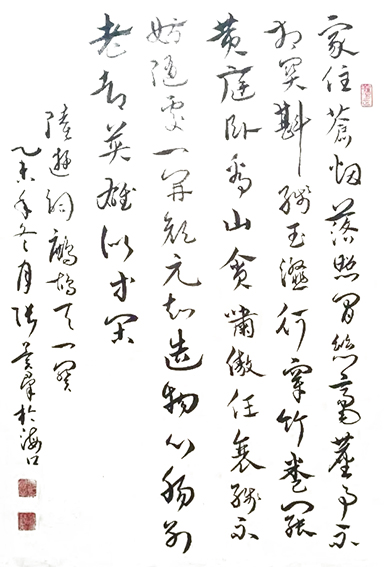 家住蒼烟落照間絲毫塵事不
相關斟殘玉瀣行穿竹卷罷
黄庭卧看山貪嘯傲任衰殘不
妨隨處一開顔元知造物心腸別
老却英雄似等閑
陸游詞鷓鴣天一闋
乙未年冬月張於海口